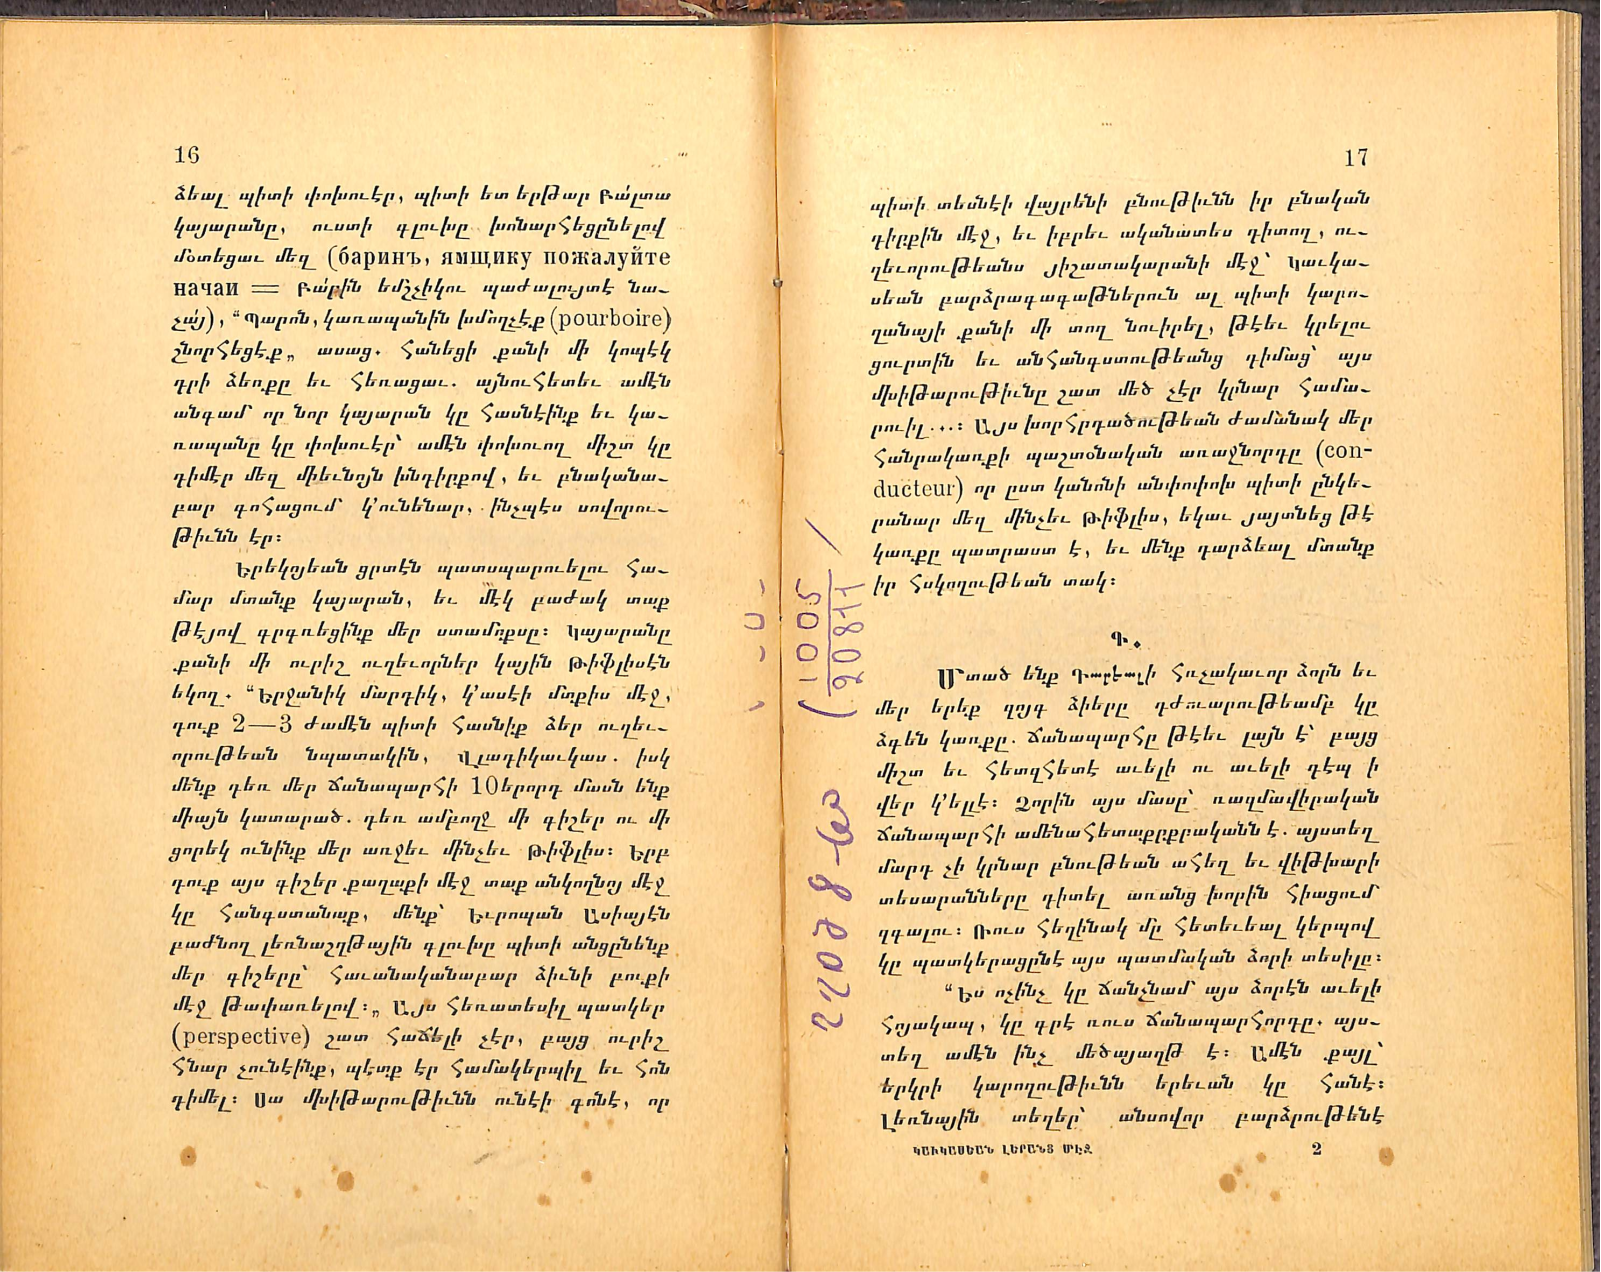 16
ձեալ պիտի փոխուէր, պիտի ետ երթար Բալտա
կայարանը, ուստի գլուխը խոնարհեցընելով
մօտեցաւ մեզ (баринъ, ямщику пожалуйте
начаи = Բարին եմշչիկու պաժալույտէ նա֊
չայ), “Պարոն, կառապանին խմողչէք (pourboire)
շնորհեցէք„ ասաց. հանեցի քանի մի կոպէկ
դրի ձեռքը եւ հեռացաւ. այնուհետեւ ամէն
անգամ որ նոր կայարան կը հասնէինք եւ կա֊
ռապանը կը փոխուէր՝ ամէն փոխուող միշտ կը
դիմէր մեզ միեւնոյն խնդիրքով, եւ բնականա֊
բար գոհացում կ՚ունենար, ինչպէս սովորու֊
թիւնն էր։
Երեկոյեան ցրտէն պատսպարուելու հա֊
մար մտանք կայարան, եւ մէկ բաժակ տաք
թէյով գրգռեցինք մեր ստամոքսը։ Կայարանը
քանի մի ուրիշ ուղեւորներ կային Թիֆլիսէն
եկող. “Երջանիկ մարդիկ, կ՚ասէի մտքիս մէջ,
դուք 2—3 ժամէն պիտի հասնիք ձեր ուղեւ֊
որութեան նպատակին, Վլադիկաւկաս. իսկ
մենք դեռ մեր ճանապարհի 10երորդ մասն ենք
միայն կատարած. դեռ ամբողջ մի գիշեր ու մի
ցորեկ ունինք մեր առջեւ մինչեւ Թիֆլիս։ Երբ
դուք այս գիշեր քաղաքի մէջ տաք անկողնոյ մէջ
կը հանգստանաք, մենք՝ Եւրոպան Ասիայէն
բաժնող լեռնաշղթային գլուխը պիտի անցընենք
մեր գիշերը՝ հաւանականաբար ձիւնի բուքի
մէջ թափառելով։„ Այս հեռատեսիլ պատկեր
(perspective) շատ հաճելի չէր, բայց ուրիշ
հնար չունէինք, պէտք էր համակերպիլ եւ հոն
դիմել։ Սա մխիթարութիւնն ունէի գոնէ, որ
17
պիտի տեսնէի վայրենի բնութիւնն իր բնական
դիրքին մէջ, եւ իբրեւ ականատես դիտող, ու֊
ղեւորութեանս յիշատակարանի մէջ՝ Կաւկա֊
սեան բարձրագագաթներուն ալ պիտի կարո֊
ղանայի քանի մի տող նուիրել, թէեւ կրելու
ցուրտին եւ անհանգստութեանց դիմաց՝ այս
մխիթարութիւնը շատ մեծ չէր կրնար համա֊
րուիլ...։ Այս խորհրդածութեան ժամանակ մեր
հանրակառքի պաշտօնական առաջնորդը (con-
ducteur) որ ըստ կանոնի անփոփոխ պիտի ընկե֊
րանար մեզ մինչեւ Թիֆլիս, եկաւ յայտնեց թէ
կառքը պատրաստ է, եւ մենք դարձեալ մտանք
իր հսկողութեան տակ։
Գ.
Մտած ենք Դարեալի հռչակաւոր ձորն եւ
մեր երեք զոյգ ձիերը դժուարութեամբ կը
ձգեն կառքը. ճանապարհը թէեւ լայն է՝ բայց
միշտ եւ հետզհետէ աւելի ու աւելի դէպ ի
վեր կ՚ելլէ։ Ձորին այս մասը՝ ռազմավիրական
ճանապարհի ամենահետաքրքրականն է. այստեղ
մարդ չի կրնար բնութեան ահեղ եւ վիթխարի
տեսարանները դիտել առանց խորին հիացում
զգալու։ Ռուս հեղինակ մը հետեւեալ կերպով
կը պատկերացընէ այս պատմական ձորի տեսիլը։
“Ես ոչինչ կը ճանչնամ այս ձորէն աւելի
հոյակապ, կը գրէ ռուս ճանապարհորդը. այս֊
տեղ ամէն ինչ մեծայաղթ է։ Ամէն քայլ՝
երկրի կարողութիւնն երեւան կը հանէ։
Լեռնային տեղեր՝ անսովոր բարձրութենէ
ԿԱՒԿԱՍԵԱՆ ԼԵՐԱՆՑ ՄԷՋ 2
1005
20811